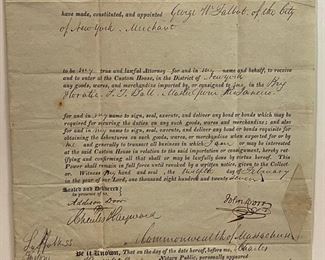 have made, constituted, and appointed George W Talbot of the City
of New York - Merchant
to be my true and lawful Attorney - for and in my name and behalf, to receive
and to enter at the Custom House, in the District of New York
any goods, wares, and merchandise imported by, or consigned to me, in the Brig
Horatio
for and in my name to sign, seal, execute, and deliver any bond or bonds which may be
required for securing the duties on any such goods, wares, and merchandise; and also
for and in my name to sign, seal, execute, and deliver any bond or bonds requisite for
obtaining the debentures on such goods, wares, or merchandise, when exported for or by
me and generally to transact all business in which I am or may be interested
at the said Custom House in relation to the said importation or consignment, hereby ratifying
and confirming all that he shall or may be lawfully doing by virtue hereof. This
Power shall remain in full force until revoked by a written notice, given to the Collector.
Witness my hand and seal, the Twelfth day of February
in the year of our Lord, one thousand eight hundred and twenty
Sealed and Delivered
in presence of
Addison Dorr
Charles Hayward
John Dorr
Commonwealth of Massachus
Be it Known, That on the day of the date hereof, before me, Charles
Notary Public, personally appeared